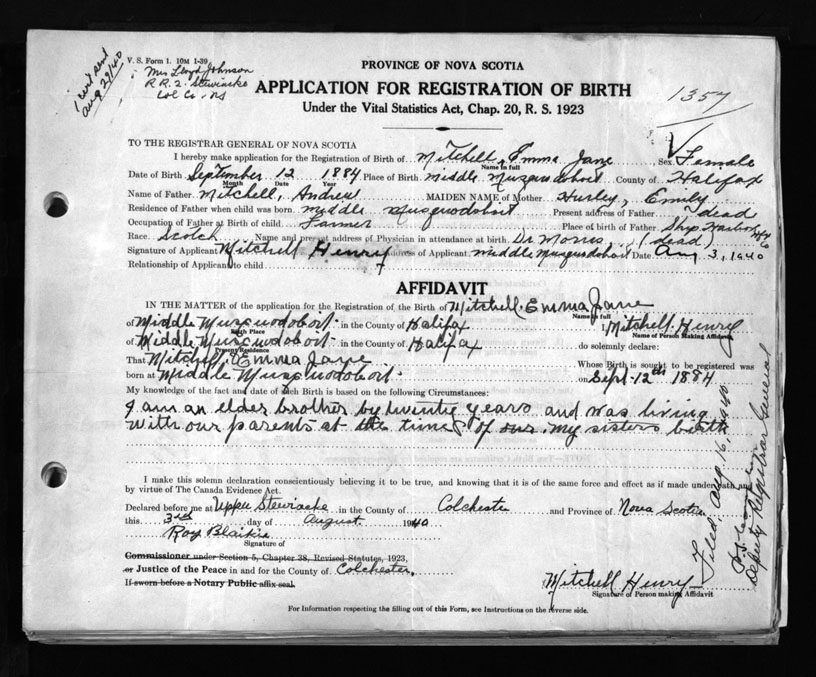 V. S. Form 1. 10M 1-39
Mrs Lloyd Johnson
R R. 2. Stewiacke
Col Co. NS
Aug 29/40
PROVINCE OF NOVA SCOTIA
APPLICATION FOR REGISTRATION OF BIRTH
Under the Vital Statistics Act, Chap. 20, R. S. 1923
1357
TO THE REGISTRAR GENERAL OF NOVA SCOTIA
I hereby make application for the Registration of Birth of Mitchell, Emma Jane Sex Female
Name in full
Date of Birth September 12 1884 Place of Birth middle Musquodoboit County of Halifax
Month Date Year
Name of Father Mitchell, Andrew MAIDEN NAME of Mother Hurley, Emily
Residence of Father when child was born middle Musquodoboit Present address of Father dead
Occupation of Father at Birth of child Farmer Place of birth of Father Ship Harbor Hfx Co
Race. Scotch Name and present address of Physician in attendance at birth. Dr Morris (dead)
Signature of Applicant Mitchell Henry Address of Applicant middle Musquodoboit Date Aug 3, 1940
Relationship of Applicant to child
AFFIDAVIT
IN THE MATTER of the application for the Registration of the Birth of Mitchell. Emma Jane
Name in full
of Middle Musquodoboit. in the County of Halifax I, Mitchell Henry
Birth Place Name of Person Making Affidavit
of Middle Musquodoboit. in the County of Halifax do solemnly declare:
Present Residence
That Mitchell. Emma Jane Whose Birth is sought to be registered was
born at Middle Musquodoboit. on Sept. 12th 1884
My knowledge of the fact and date of such Birth is based on the following Circumstances:
I am an elder brother by twenty years and was living
with our parents at the time of our my sisters birth
I make this solemn declaration conscientiously believing it to be true, and knowing that it is of the same force and effect as if made under oath and
by virtue of The Canada Evidence Act.
Declared before me at Upper Stewiacke in the County of Colchester and Province of Nova Scotia
this 3rd day of August 1940
Roy Blaikie
Signature of
Commissioner under Section 5, Chapter 38, Revised Statutes, 1923,
or Justice of the Peace in and for the County of Colchester.
If sworn before a Notary Public affix seal.
Mitchell Henry
Signature of Person making Affidavit
For Information respecting the filling out of this Form, see Instructions on the reverse side.
Filed, Aug 16, 1940.
Deputy Registrar General